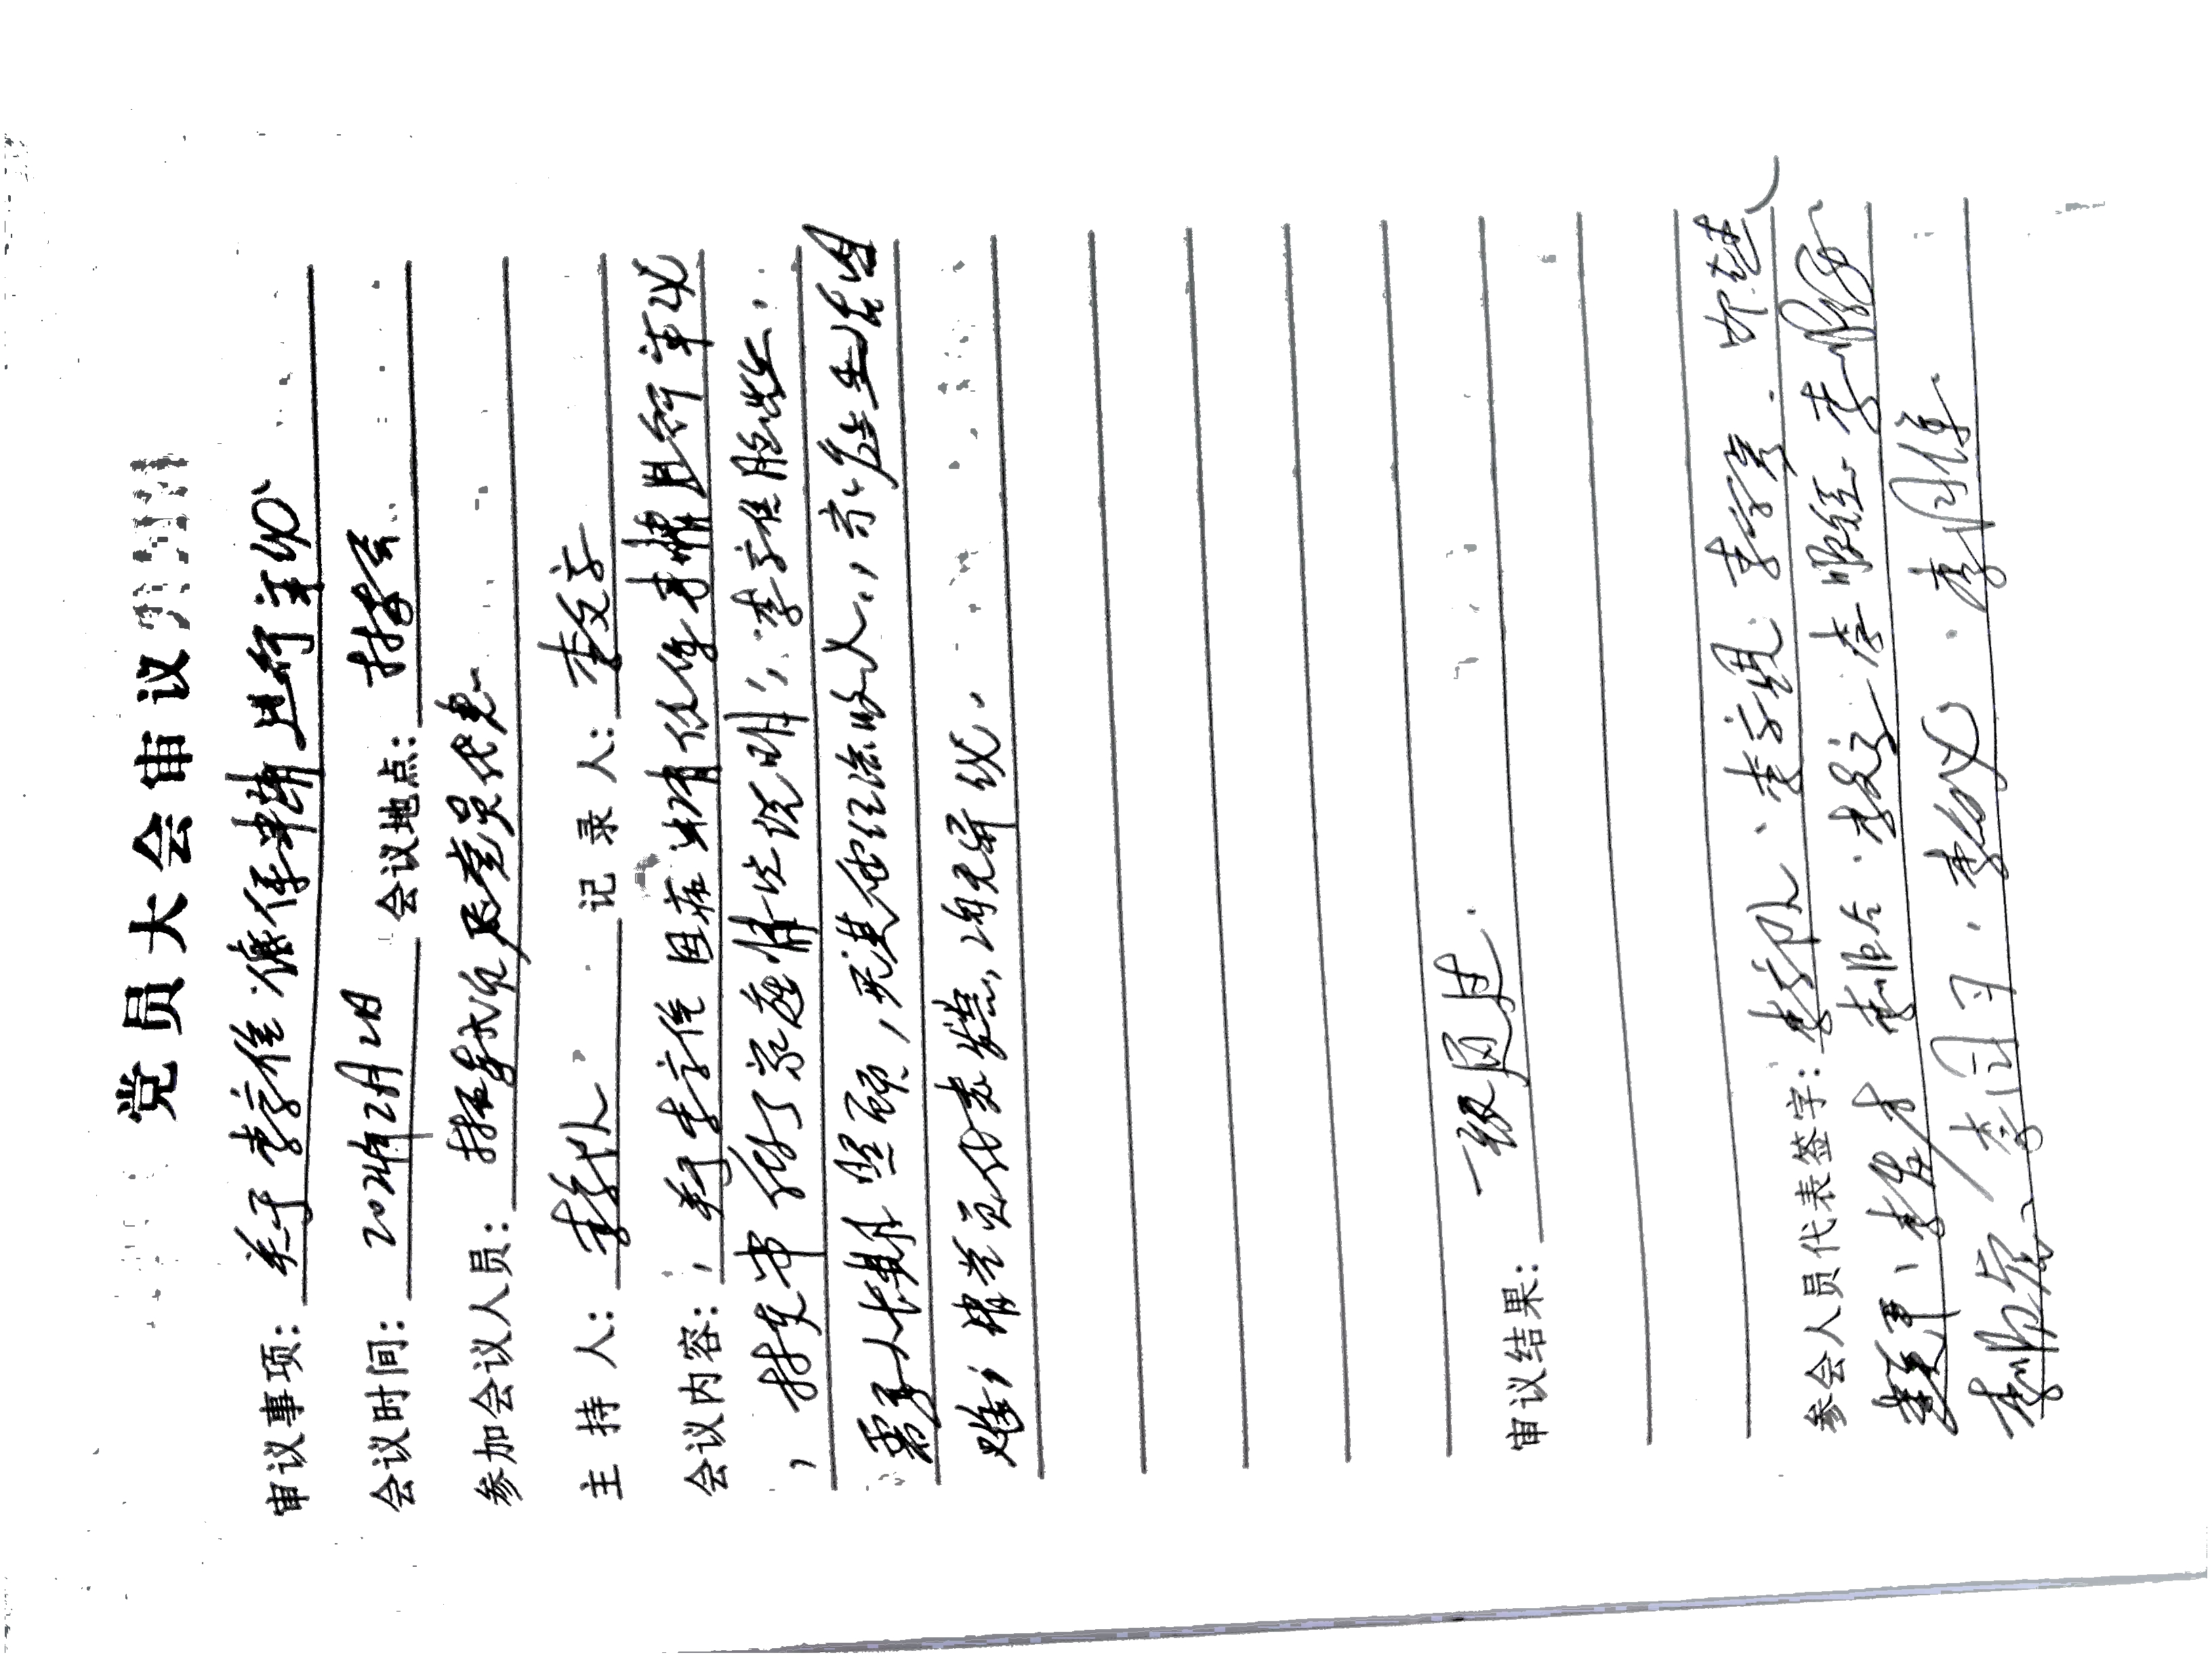 党员大会审议
审议事项：关于李字俭低保申请进行审议
会议时间：2021年2月2日 会议地点：村委会
参加会议人员：村两委成员及党员代表
主 持 人：李队 记 录 人：李文字
会议内容：，关于李字俭因病申请低保事情进行审议
，村支书做了家庭情况说明；李字俭脑出血，
需要人长期照顾，无其他经济收入，家庭生活困
难；请党员代表发言，均无异议。
审议结果：一致通过.
参会人员代表签字：李 队、李字 李字
李 李发才 李 李文字 李顺 李
李顺 李 李 李